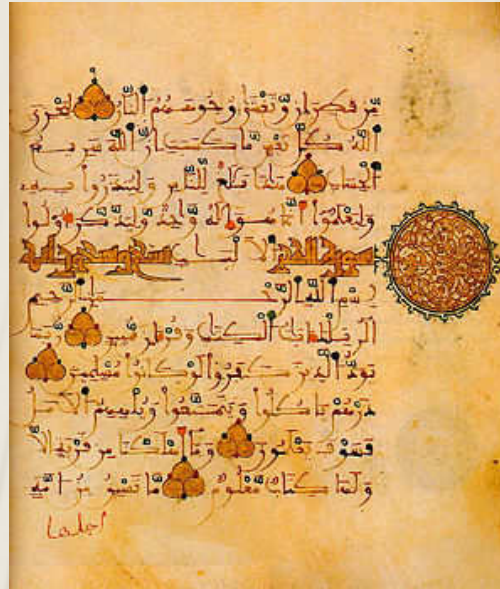 مّن قطران وتغشى وجوههم النّار ليجزي
الله كلّ نفس مّا كسبت إنّ الله سريع
الحساب هذا بلغ لّلنّاس ولينذروا به
وليعلموا أنّما هو إله وحد وليذّكّر أولوا
سورة الحجر الالبب تسع وتسعون اية
بسم الله الرّحمن الرّحيم
الر تلك ايت الكتب وقران مّبين رّبما
يودّ الّذين كفروا لو كانوا مسلمين
ذرهم ياكلوا ويتمتّعوا ويلههم الامل
فسوف يعلمون وما أهلكنا من قرية الّا
ولها كتاب مّعلوم مّا تسبق من امّة
أجلها